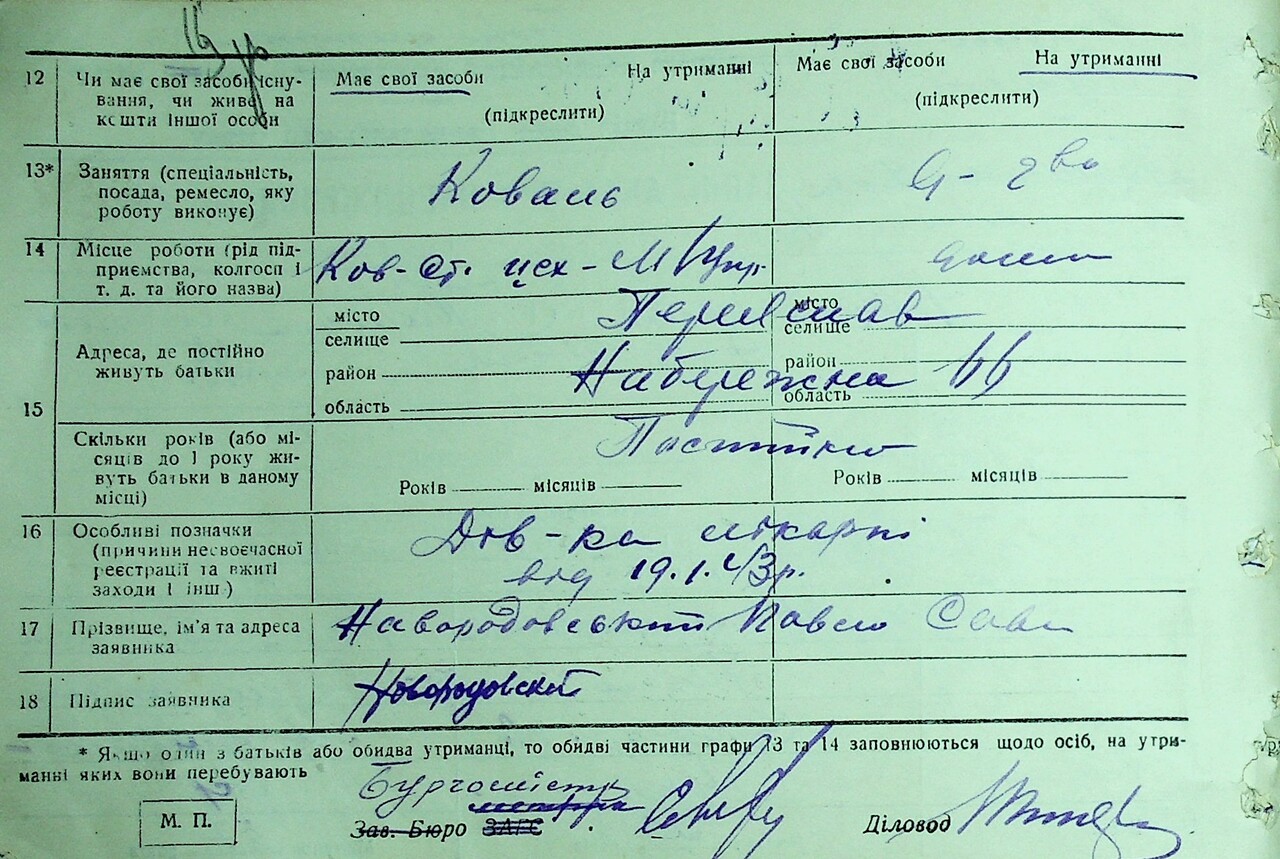 12 Чи має свої засоби існу- Має свої засоби На утриманні Має свої засоби На утриманні
вання, чи живе на (підкреслити) (підкреслити)
кошти іншої особи
13* Заняття (спеціальність, Коваль
посада, ремесло, яку
роботу виконує)
14 Місце роботи (рід під- Ков-ст. цех-
приємства, колгосп і
т. д. та його назва)
місто Переяслав місто
селище селище
15 Адреса, де постійно район Набережна район
живуть батьки область область
Скільки років (або мі- Постійно
сяців до 1 року жи-
вуть батьки в даному Років місяців Років місяців
місці)
16 Особливі позначки Дов-ка лікарні
(причини несвоєчасної від 19.1.43р.
реєстрації та вжиті
заходи і інш.)
17 Прізвище, ім'я та адреса Павло Сав
заявника
18 Підпис заявника
* Якщо один з батьків або обидва утриманці, то обидві частини графи 13 та 14 заповнюються щодо осіб, на утри-
манні яких вони перебувають
Бургомістр
М. П. Зав. Бюро ЗАГС Діловод